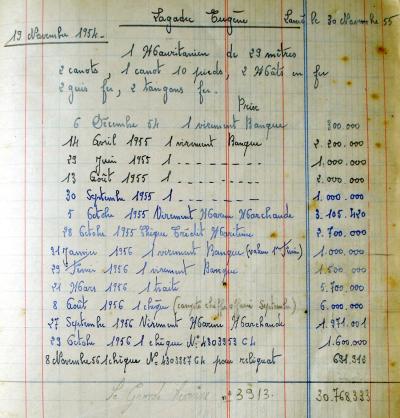 Lagadec Eugène Lancé le 30 Novembre 55
19 Novembre 1954.
1 Mauritanien de 29 mètres
2 canots, 1 canot 10 pieds, 2 Mâts en fer
2 guis fer, 2 tangons fer.
Prix
6 Décembre 54 1 virement Banque 300.000
14 Avril 1955 1 virement Banque 2.200.000
29 Juin 1955 1 _ _ _ _ _ _ _ _ _ 1.000.000
13 Août 1955 1 _ _ _ _ _ _ _ _ _ 2.000.000
30 Septembre 1955 1 _ _ _ _ _ _ _ _ _ 1.000.000
5 Octobre 1955 Virement Marine Marchande 3.105.420
28 Octobre 1955 Chèque Crédit Maritime 2.700.000
31 Janvier 1956 1 virement Banque (valeur 1er Février) 1.000.000
29 Février 1956 1 virement Banque 1.500.000
21 Mars 1956 1 traite 5.700.000
8 Août 1956 1 chèque Septembre) 6.000.000
27 Septembre 1956 Virement Marine Marchande 1.971.001
29 Octobre 1956 1 chèque N° 4303953 C4 1.600.000
8 Novembre 56 1 chèque N° 4303987 C4 pour reliquat 691.912
n° 3913. 30.768.333